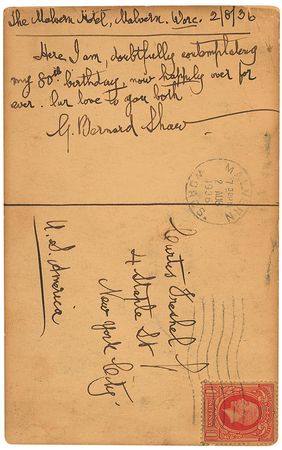 The Malvern Hotel, Malvern, Worc. 2/8/36
Here I am, doubtfully contemplating
my 80th birthday, now happily over for
ever. Our love to you both
G. Bernard Shaw
MALVERN
2 AUG
1936
WORCS.
Curtis Freshel
4 Staple St
New York City.
U.S. America